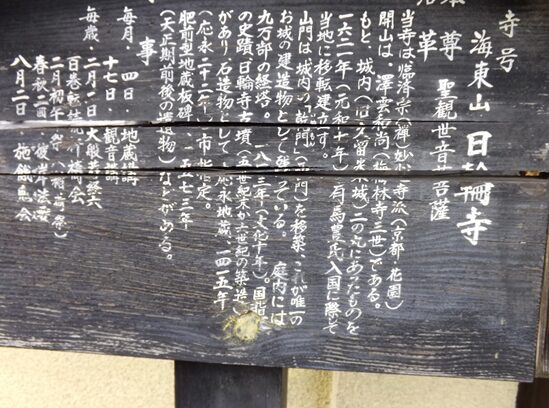 寺号 海東山 日輪寺
本尊 聖観世音菩薩
沿革
当寺は臨済宗(禅)妙心寺派(京都・花園)
開山は、澤雲和尚(梅林寺三世)である。
もと、城内(旧久留米城)二の丸にあったものを
一六二一年(元和七年)有馬豊氏入国に際して
当地に移転建立す。
山門は城内の 門( 門)を移築、これが唯一の
お城の建造物として残っている。 庭内には
九万部の経塔。一八一三年(文化十年)。国指定
の史蹟日輪寺古墳(五世紀末か六世紀の築造)
があり石造物として、応永地蔵、一四一五年
(応永二十二年)市指定。
肥前型地蔵板碑、一五七三年
(天正期前後の遺物)などがある。
事
毎月・四日・地蔵講
十七日・観音講
毎歳・二月一日大般若経六
百巻転読祈祷会
二月初午祭(稲荷祭)
春秋二回・彼岸法要
八月二日 施餓鬼会